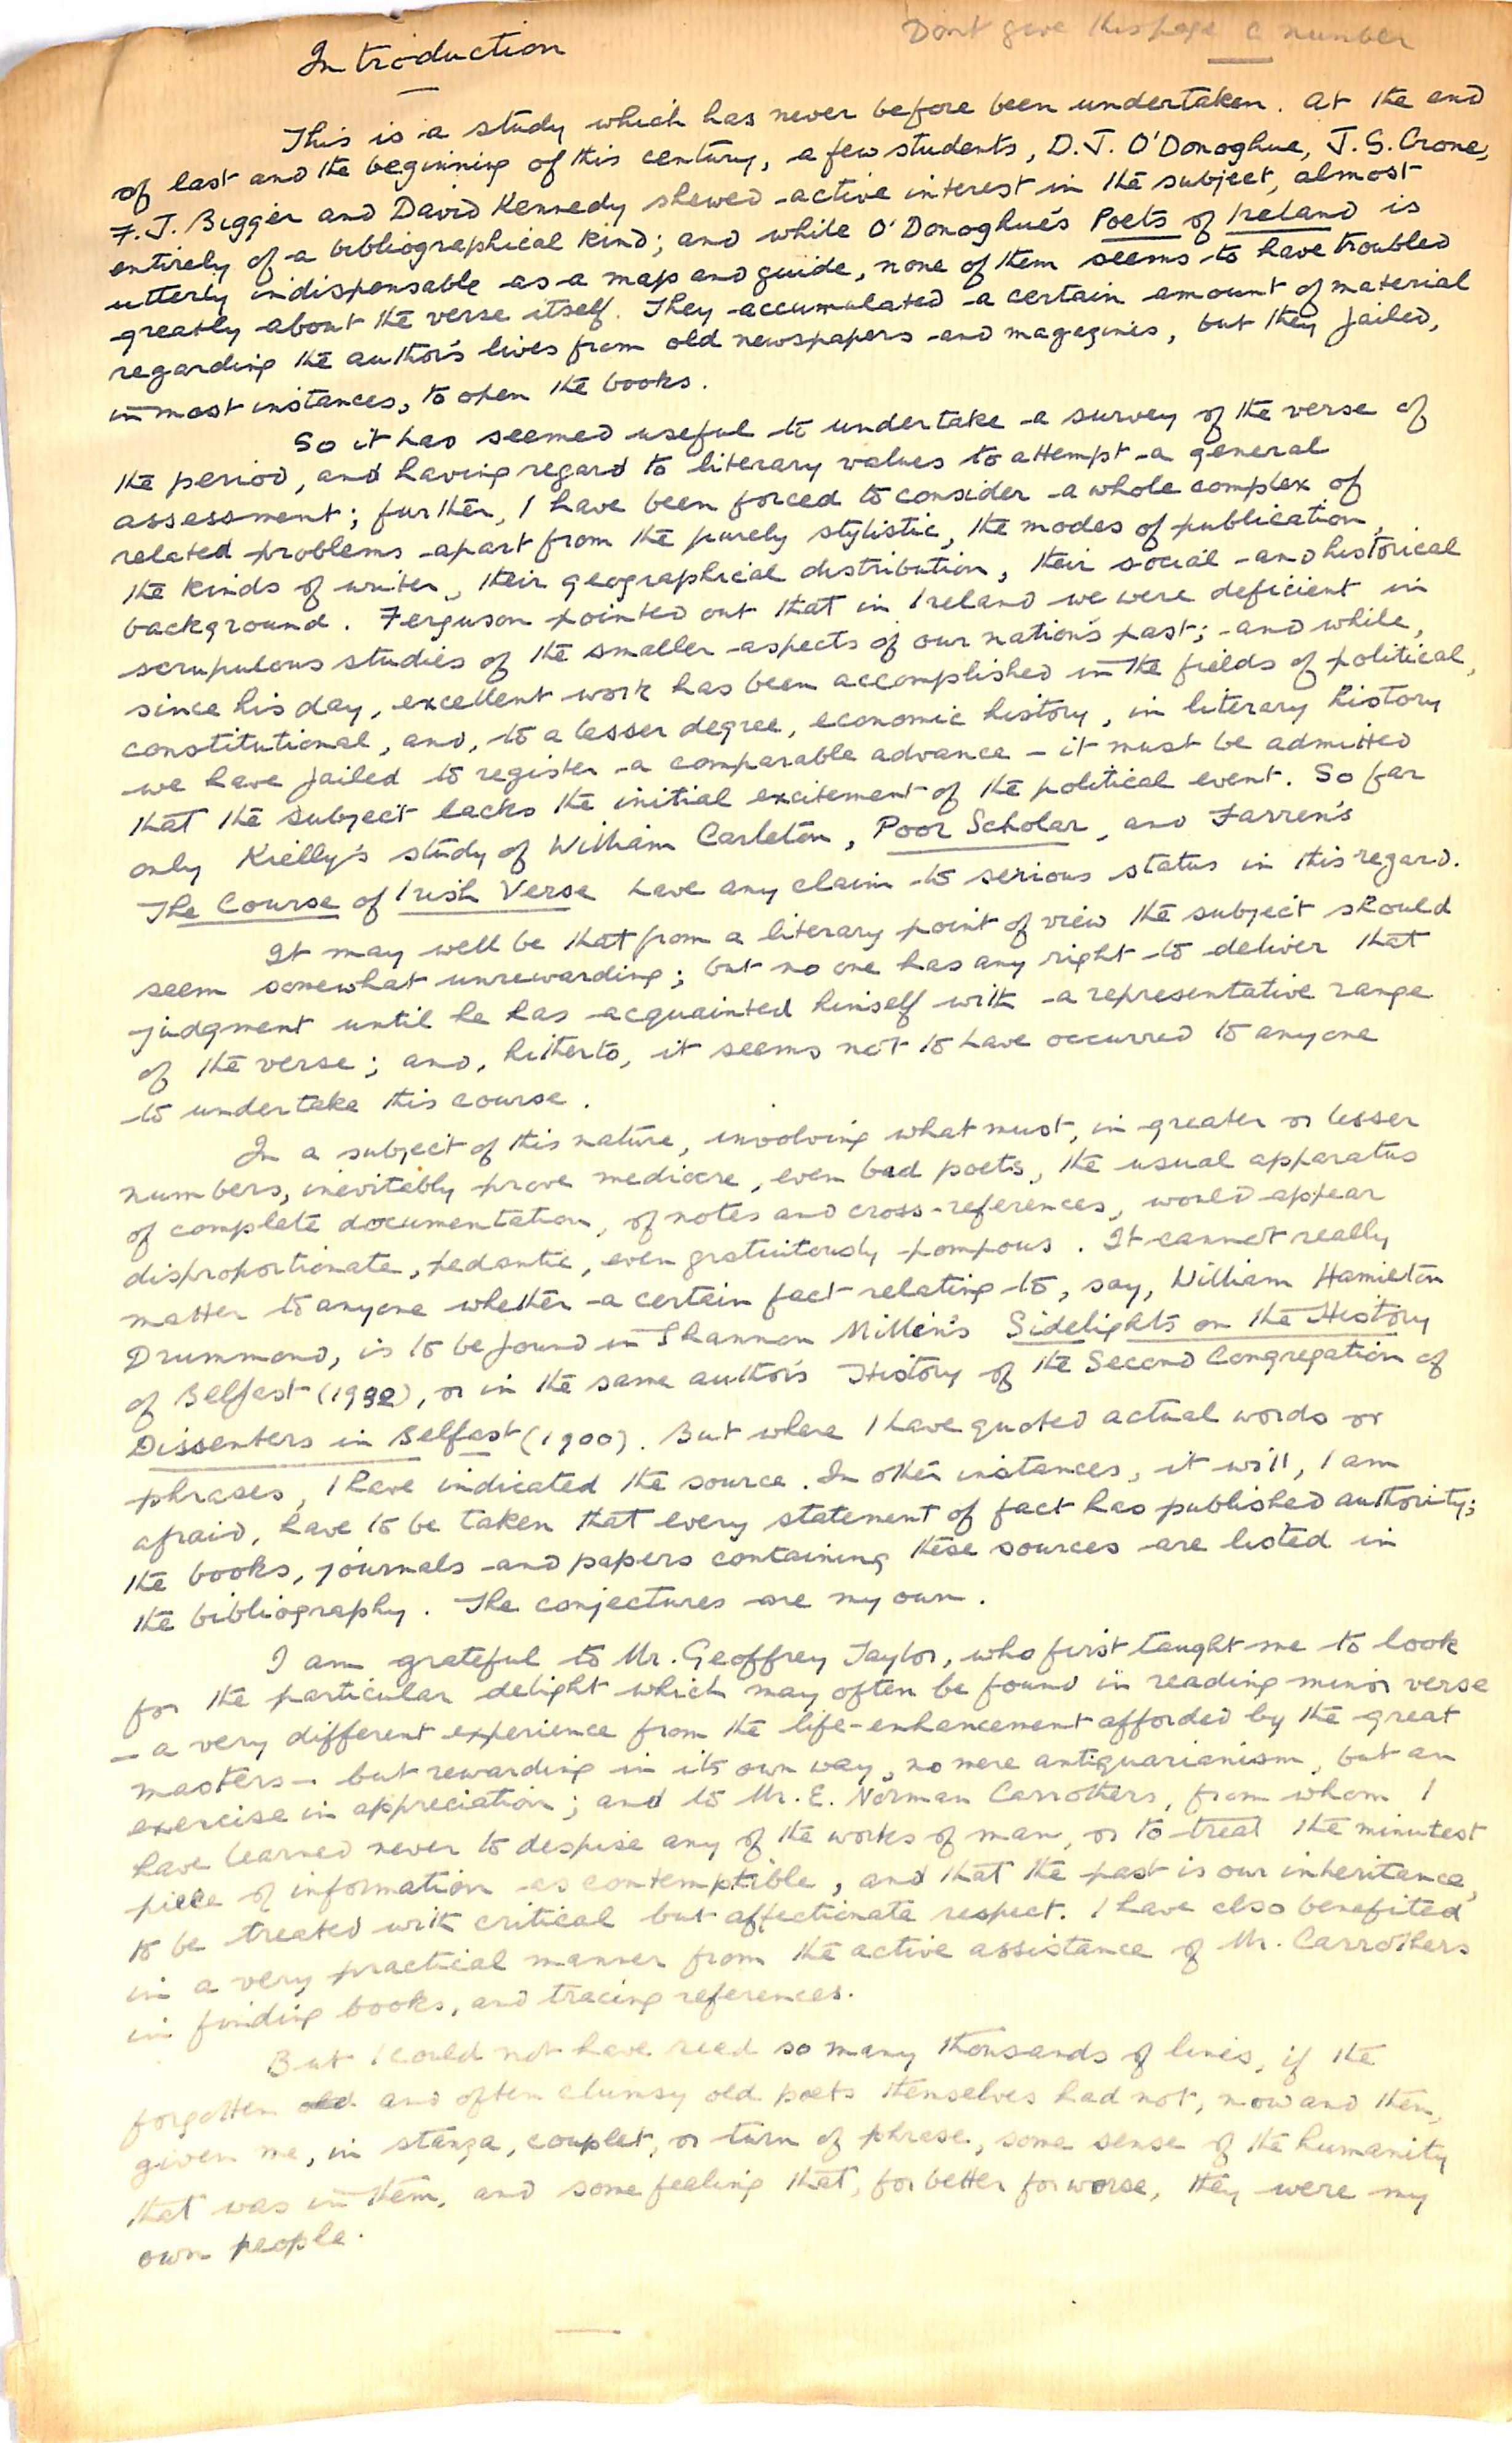 Dont give this page a number
Introduction
This is a study which has never before been undertaken. At the end
of last and the beginning of this century, a few students, D.J. O'Donoghue, J.S. Crone,
F.J. Bigger and David Kennedy shewed active interest in the subject, almost
entirely of a bibliographical kind; and while O'Donoghue's Poets of Ireland is
utterly indispensable as a map and guide, none of them seems to have troubled
greatly about the verse itself. They accumulated a certain amount of material
regarding the author's lives from old newspapers and magazines, but they failed,
in most instances, to open the books.
So it has seemed useful to undertake a survey of the verse of
the period, and having regard to literary values to attempt a general
assessment; further, I have been forced to consider a whole complex of
related problems apart from the purely stylistic, the modes of publication,
the kinds of writer, their geographical distribution, their social and historical
background. Ferguson pointed out that in Ireland we were deficient in
scrupulous studies of the smaller aspects of our nation's past; and while,
since his day, excellent work has been accomplished in the fields of political,
constitutional, and, to a lesser degree, economic history, in literary history
we have failed to register a comparable advance – it must be admitted
that the subject lacks the initial excitement of the political event. So far
only Kielly's study of William Carleton, Poor Scholar, and Farren's
The Course of Irish Verse have any claim to serious status in this regard.
It may well be that from a literary point of view the subject should
seem somewhat unrewarding; but no one has any right to deliver that
judgment until he has acquainted himself with a representative range
of the verse; and, hitherto, it seems not to have occurred to anyone
to undertake this course.
In a subject of this nature, involving what must, in greater or lesser
numbers, inevitably prove mediocre, even bad poets, the usual apparatus
of complete documentation, of notes and cross-references, would appear
disproportionate, pedantic, even gratuitously pompous. It cannot really
matter to anyone whether a certain fact relating to, say, William Hamilton
Drummond, is to be found in Shannon Millin's Sidelights on the History
of Belfast (1932), or in the same author's History of the Second Congregation of
Dissenters in Belfast (1900). But where I have quoted actual words or
phrases, I have indicated the source. In other instances, it will, I am
afraid, have to be taken that every statement of fact has published authority;
the books, journals and papers containing these sources are listed in
the bibliography. The conjectures are my own.
I am grateful to Mr. Geoffrey Taylor, who first taught me to look
for the particular delight which may often be found in reading minor verse
– a very different experience from the life-enhancement afforded by the great
masters – but rewarding in its own way, no mere antiquarianism, but an
exercise in appreciation; and to Mr. E. Norman Carrothers, from whom I
have learned never to despise any of the works of man, or to treat the minutest
piece of information as contemptible, and that the past is our inheritance,
to be treated with critical but affectionate respect. I have also benefited
in a very practical manner from the active assistance of Mr. Carrothers
in finding books, and tracing references.
But I could not have read so many thousands of lines, if the
forgotten old and often clumsy old poets themselves had not, now and then,
given me, in stanza, couplet, or turn of phrase, some sense of the humanity
that was in them, and some feeling that, for better for worse, they were my
own people.